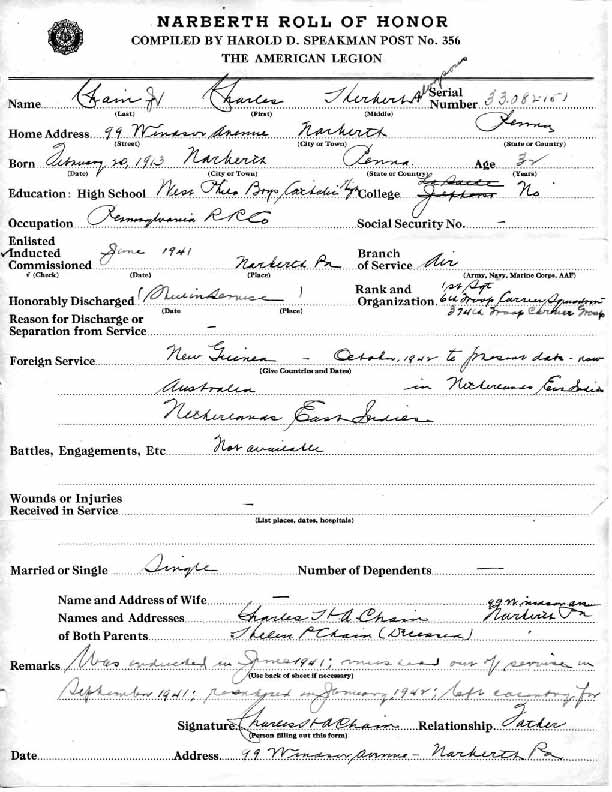 NARBERTH ROLL OF HONOR
COMPILED BY HAROLD D. SPEAKMAN POST No. 356
THE AMERICAN LEGION
Name Chain Jr Charles Herbert Serial Number 33.082151
(Last) (First) (Middle)
Home Address 99 Windsor Avenue Narberth Penna
(Street) (City or Town) (State or Country)
Born February 20, 1913 Narberth Penna. Age 32
(Date) (City or Town) (State or Country) (Years)
Education: High School West Phila Boys Catholic College No
Occupation Pennsylvania RR Co Social Security No. –
Enlisted
✓Inducted June 1941 Narberth Pa Branch
Commissioned of Service Air
√ (Check) (Date) (Place) (Army, Navy, Marine Corps, AAF)
Honorably Discharged (Still in Service) Rank and 1st Sgt
Organization 6th Troop Carrier Squadron
374th Troop Carrier Group
(Date (Place)
Reason for Discharge or
Separation from Service –
Foreign Service New Guinea – October, 1942 to present date - now
(Give Countries and Dates)
Australia in Netherlands East Indies
Netherlands East Indies
Battles, Engagements, Etc Not available
Wounds or Injuries
Received in Service –
(List places, dates, hospitals)
Married or Single Single Number of Dependents –
Name and Address of Wife – 99 Windsor Ave
Names and Addresses Charles H A Chain Narberth Pa
of Both Parents Helen P Chain (Deceased)
Remarks Was inducted in June 1941; out of service in
(Use back of sheet if necessary)
September 1941; in January, 1942; left country for
Signature Charles H A Chain Relationship Father
(Person filling out this form)
Date Address 99 Windsor Avenue - Narberth Pa